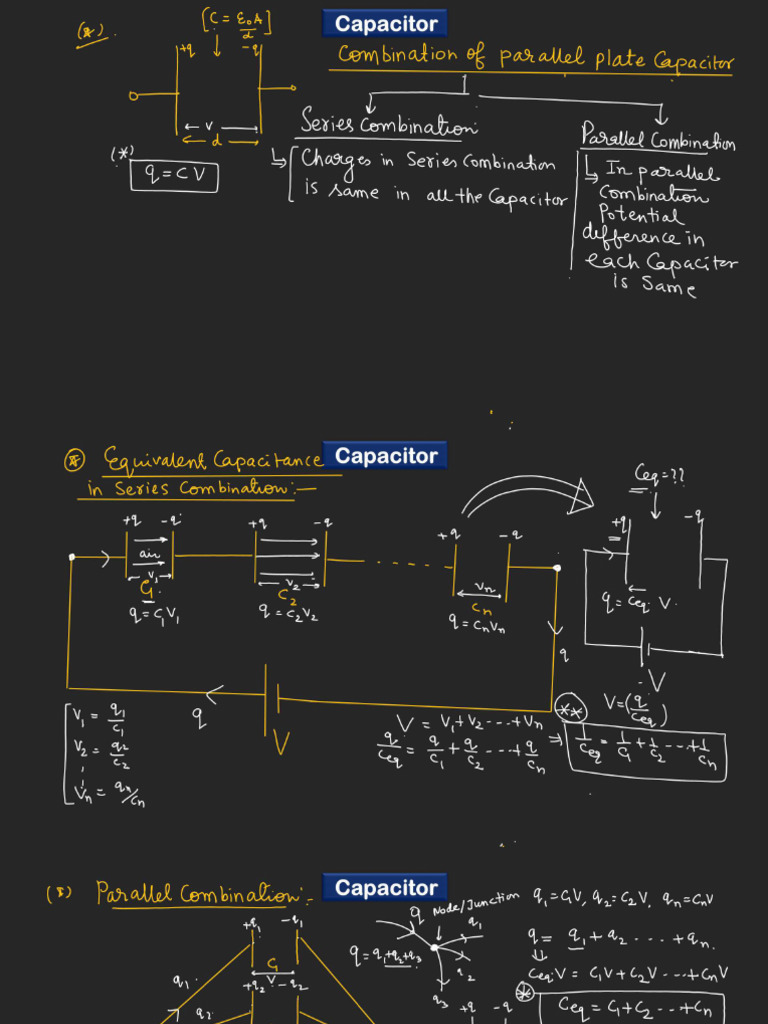 Capacitor
(*)
[C = ε₀A/d]
+q -q
Combination of parallel plate Capacitor
v
d
(*)
q = CV
Series Combination
Charges in Series Combination
is same in all the Capacitor
Parallel Combination
In parallel
Combination
Potential
difference in
each Capacitor
is Same
Capacitor
Equivalent Capacitance
in Series Combination:-
Ceq = ??
+q -q
air
V₁
C₁
q = C₁V₁
+q -q
V₂
C₂
q = C₂V₂
+q -q
Vn
Cn
q = CnVn
+q -q
q = Ceq. V
V
q
q
V
V₁ = q₁/C₁
V₂ = q₂/C₂
Vn = qn/Cn
V = V₁+V₂ ...+Vn
q/Ceq = q/C₁ + q/C₂ ...+ q/Cn ⇒
** V = (q/Ceq)
1/Ceq = 1/C₁ + 1/C₂ ...+ 1/Cn
Capacitor
Parallel Combination:-
+q₁ -q₁
C₁
V
+q₂ -q₂
q₁
q₂
q Node/Junction
q₁
q = q₁+q₂+q₃
q₂
q₃
+q -q
q₁=C₁V, q₂=C₂V, qn=CnV
q = q₁+q₂ ...+qn.
Ceq.V = C₁V+C₂V ...+CnV
* Ceq = C₁+C₂ ...+Cn